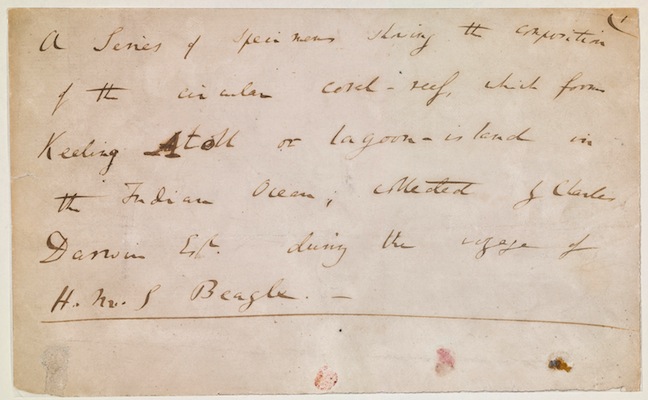 A Series of specimens showing the composition
of the circular coral-reef, which forms
Keeling Atoll or lagoon-island in
the Indian Ocean; collected by Charles
Darwin Esqr. during the voyage of
H.M.S Beagle. —